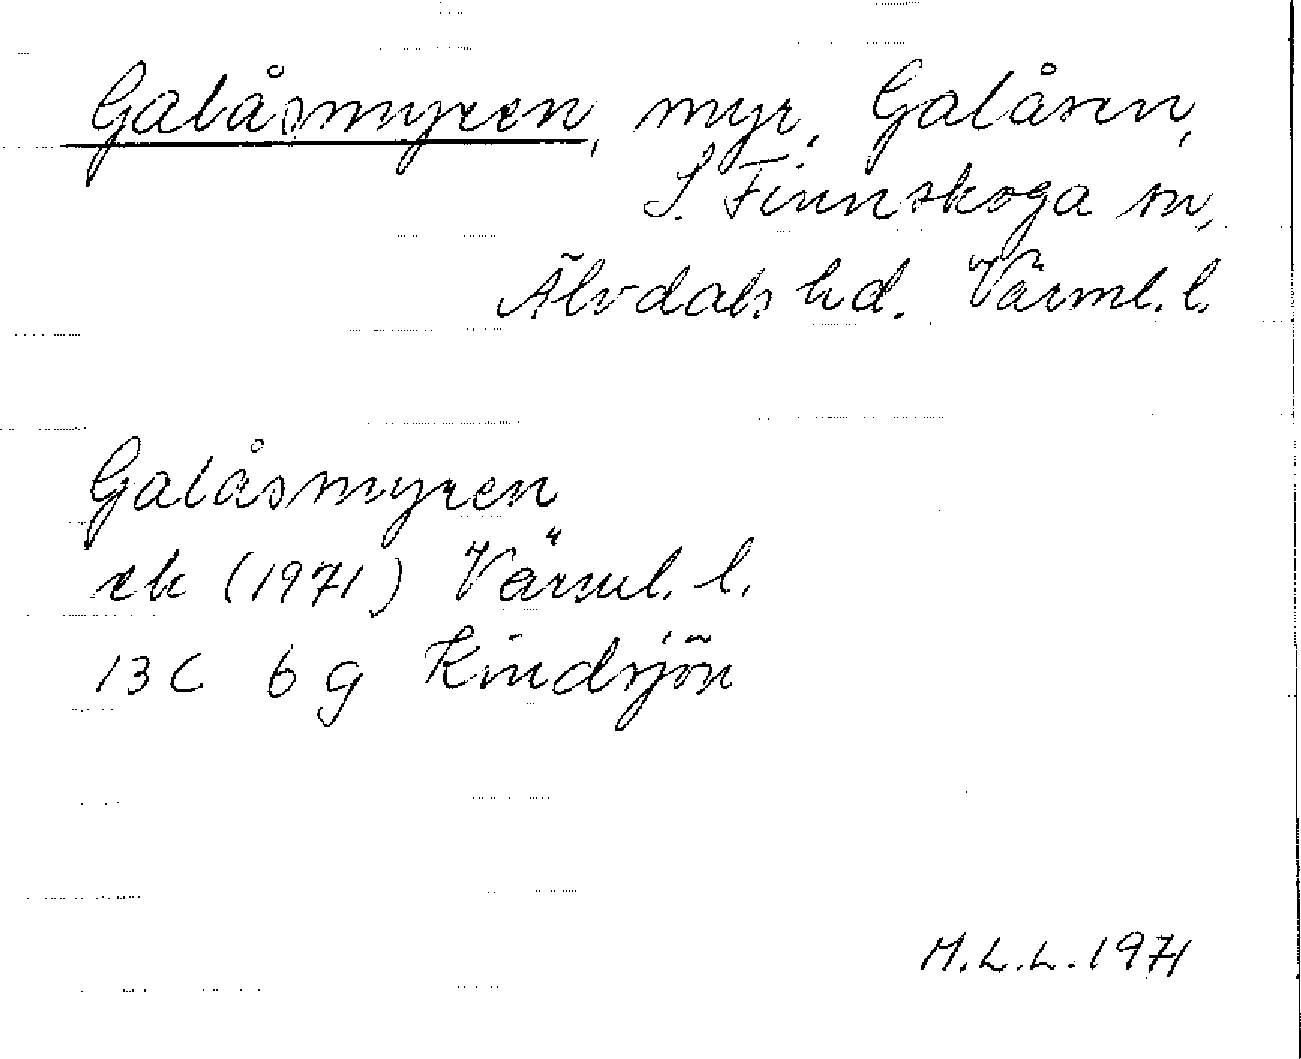 Galåsmyren, myr, Galåsen,
S. Finnskoga sn,
Älvdals hd. Värml. l.
Galåsmyren
ek (1971) Värml. l.
13 C 6 g Kindsjön
M.L.L. 1971